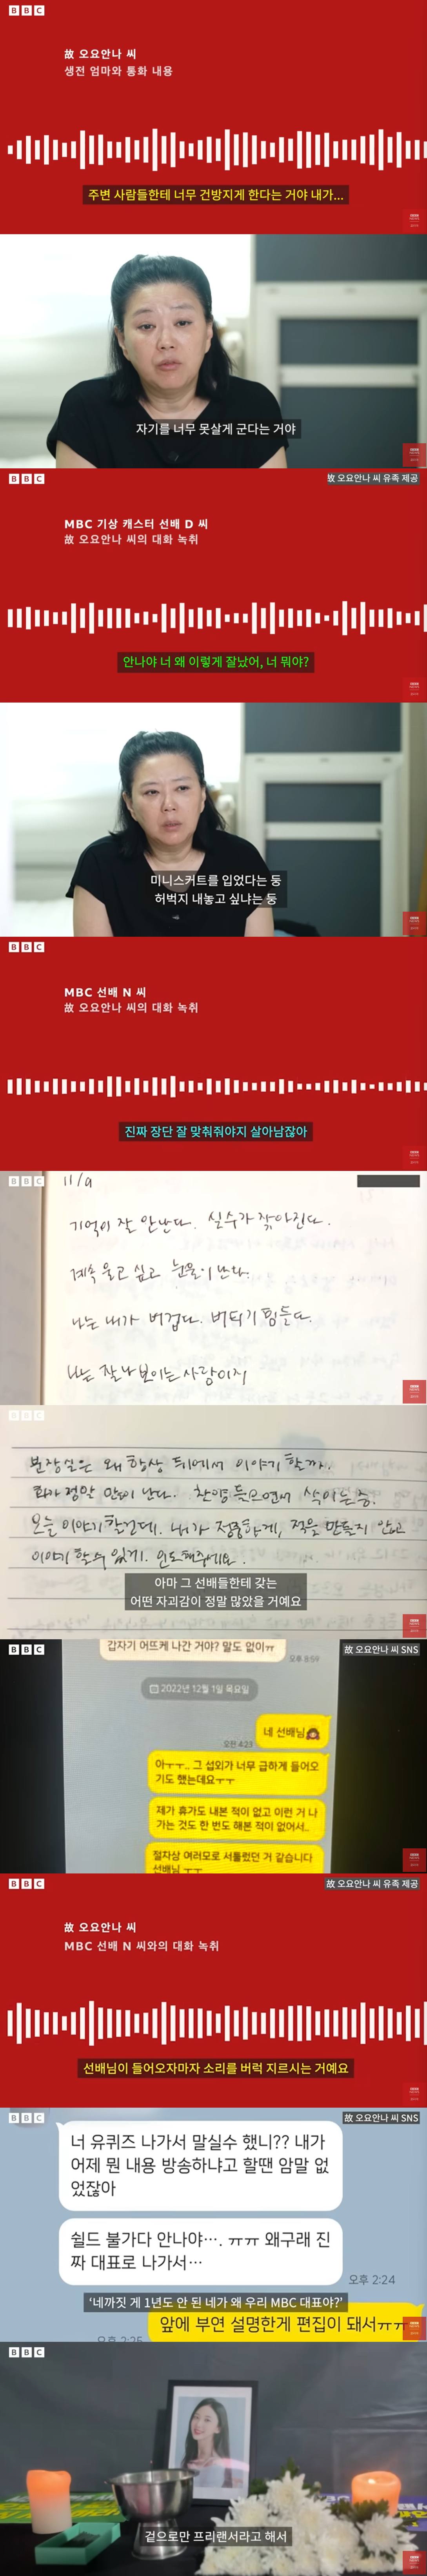 BBC
故 오요안나 씨
생전 엄마와 통화 내용
주변 사람들한테 너무 건방지게 한다는 거야 내가...
자기를 너무 못살게 군다는 거야
BBC
故 오요안나 씨 유족 제공
MBC 기상 캐스터 선배 D 씨
故 오요안나 씨의 대화 녹취
안나야 너 왜 이렇게 잘났어, 너 뭐야?
미니스커트를 입었다는 둥
허벅지 내놓고 싶냐는 둥
BBC
MBC 선배 N 씨
故 오요안나 씨의 대화 녹취
진짜 장단 잘 맞춰줘야지 살아남잖아
BBC
11/9
기억이 잘 안난다. 실수가 잦아진다.
계속 울고 싶고 눈물이 난다.
나는 내가 버겁다. 버티기 힘들다.
나는 잘나 보이는 사람이지
BBC
왜 항상 뒤에서 이야기 할까.
화가 정말 많이 난다. 찬양 들으면서 삭이는 중.
오늘 이야기 할건데. 내가 정중하게, 적을 만들지 않고
이야기 할수 있게. 인도해주세요.
아마 그 선배들한테 갖는
어떤 자괴감이 정말 많았을 거예요
BBC
故 오요안나 씨 SNS
갑자기 어뜨케 나간 거야? 말도 없이ㅠ
오후 8:59
2022년 12월 1일 목요일
네 선배님
오전 4:23
아ㅜㅜ.. 그 섭외가 너무 급하게 들어오
기도 했는데요ㅜㅜ
제가 휴가도 내본 적이 없고 이런 거 나
가는 것도 한 번도 해본 적이 없어서..
절차상 여러모로 서툴렀던 거 같습니다
선배님 ㅜㅜ
BBC
故 오요안나 씨 유족 제공
故 오요안나 씨
MBC 선배 N 씨와의 대화 녹취
선배님이 들어오자마자 소리를 버럭 지르시는 거예요
BBC
故 오요안나 씨 SNS
너 유퀴즈 나가서 말실수 했니?? 내가
어제 뭔 내용 방송하냐고 할땐 암말 없
었잖아
쉴드 불가다 안나야…. ㅠㅠ 왜구래 진
짜 대표로 나가서…
오후 2:24
‘네까짓 게 1년도 안 된 네가 왜 우리 MBC 대표야?’
앞에 부연 설명한게 편집이 돼서ㅠㅠ
오후 2:25
BBC
겉으로만 프리랜서라고 해서